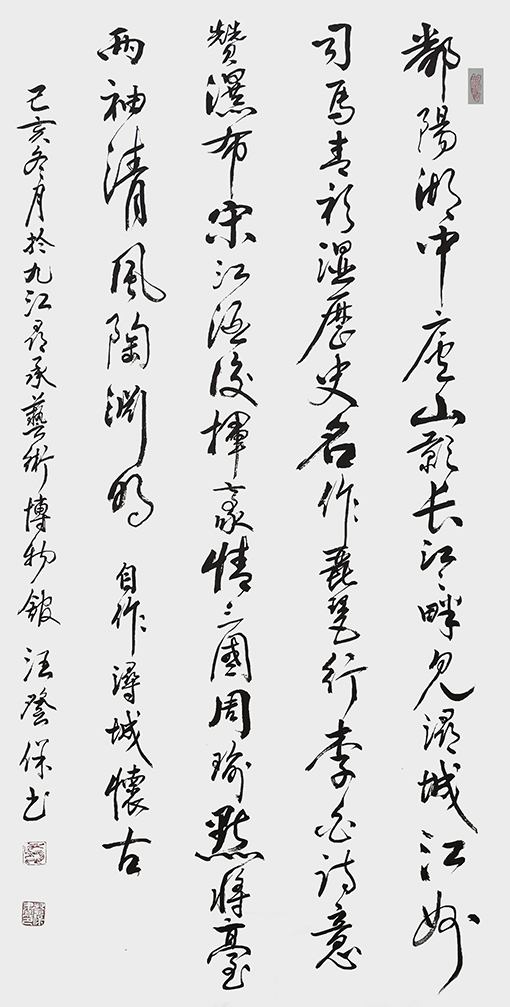 鄱陽湖中廬山影长江畔見潯城江州
司馬青衫濕歷史名作琵琶行李白詩意
贊瀑布宋江酒後揮豪情三國周瑜點將臺
兩袖清風陶淵明 自作潯城懷古
己亥冬月於九江尋承藝術博物館 汪登保书